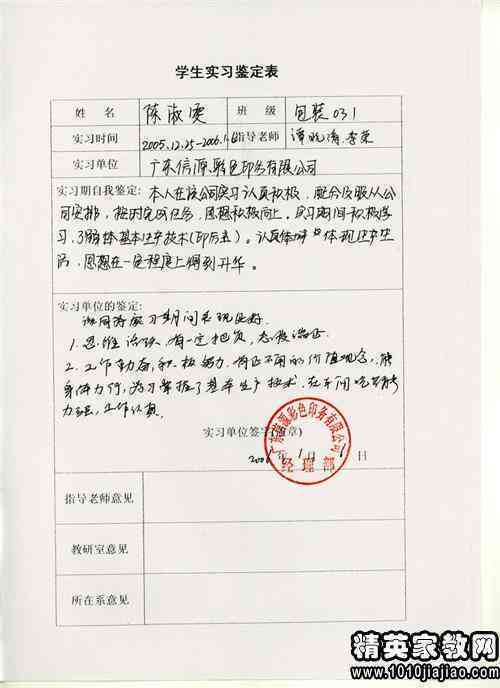 学生实习鉴定表
姓 名 陈淑雯 班 级 包装031
实习时间 2005.12.25-2006.1. 指导老师 谭 清 李荣
实习单位 广东信源彩色印务有限公司
实习期自我鉴定: 本人在该公司实习认真积极,配合及服从公
司安排,按时完成任务,思想积极向上。实习期间积极学
习,了解 基本生产技术(印后并)。认真体 体现生产生
活,思想在一定程度上得到升华。
实习单位的鉴定:
该同学实习期间表现良好.
1.思维活跃,有一定 态度端正.
2.工作勤奋,积极努力,有正 的价值观念,能
身体力行,学习掌握了基本生产技术,在车间吃苦耐
力 ,工作认真.
实习单位签字(盖章)
200 年 1 月 日
广东信源彩色印务有限公司
经理部
指导老师意见
教研室意见
所在系意见
精英家教网
www.1010jiajiao.com